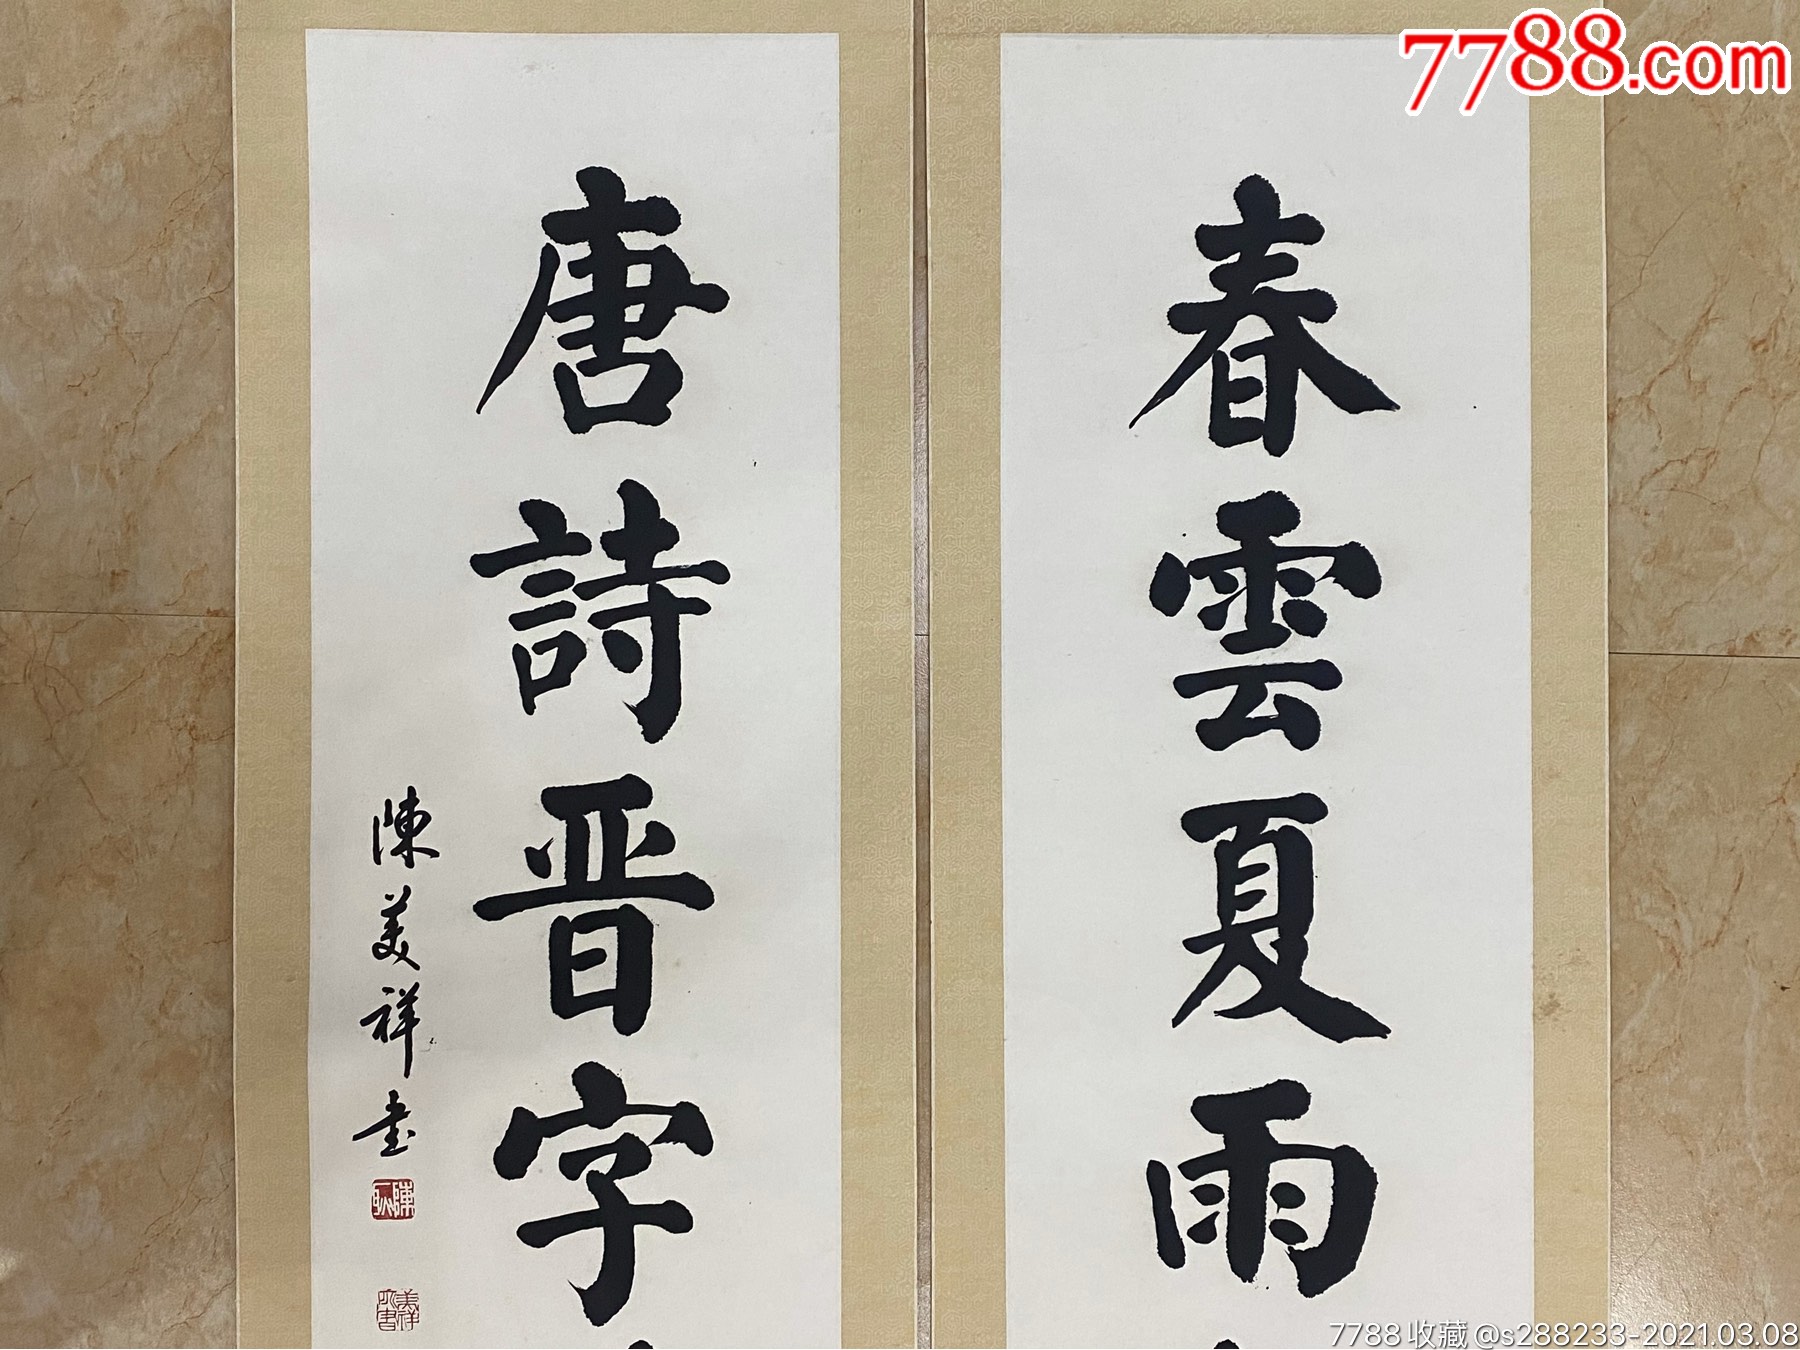 7788.com
春雲夏雨
唐詩晋字
陳美祥书
7788收藏@s288233-2021.03.08